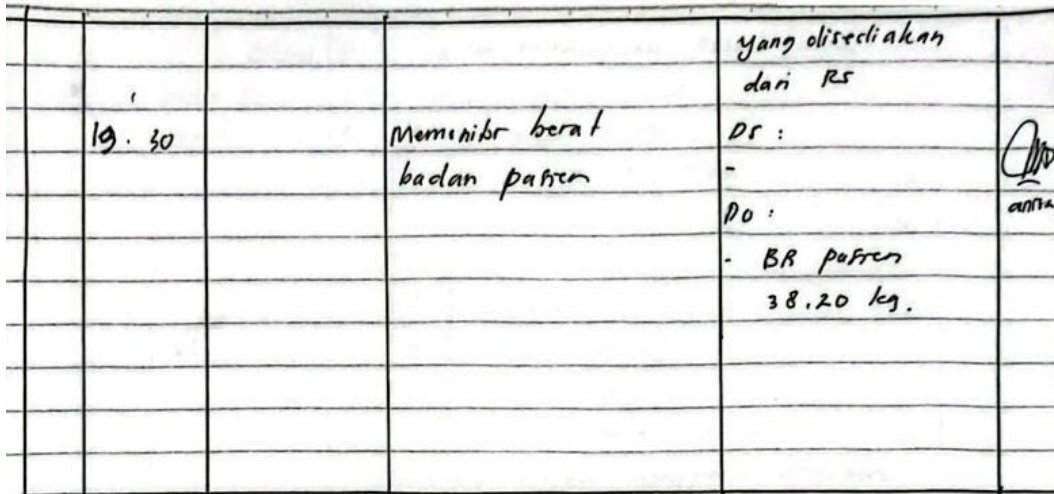 yang disediakan
dari RS
19.30
Memonitor berat
badan pasien
DS :
-
DO :
- BB pasien
38.20 kg.
anita